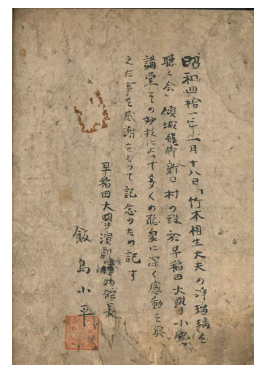 昭和四拾一年二月十八日「竹本相生大夫の浄瑠璃を
聴く会」傾城飛脚新口村の段於早稲田大学小野
講堂その妙技によつて多くの聴衆に深く感動を與
えた事を感謝をもつて記念のため記す
早稲田大学演劇博物館長
飯島小平